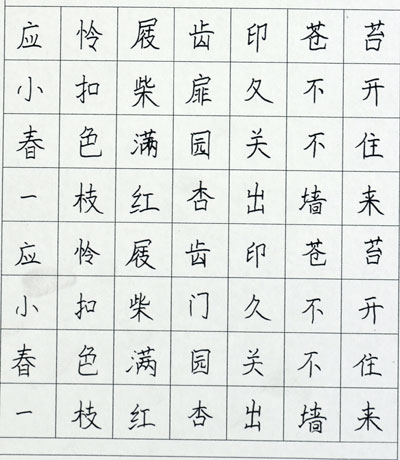 应怜屐齿印苍苔
小扣柴扉久不开
春色满园关不住
一枝红杏出墙来
应怜屐齿印苍苔
小扣柴门久不开
春色满园关不住
一枝红杏出墙来